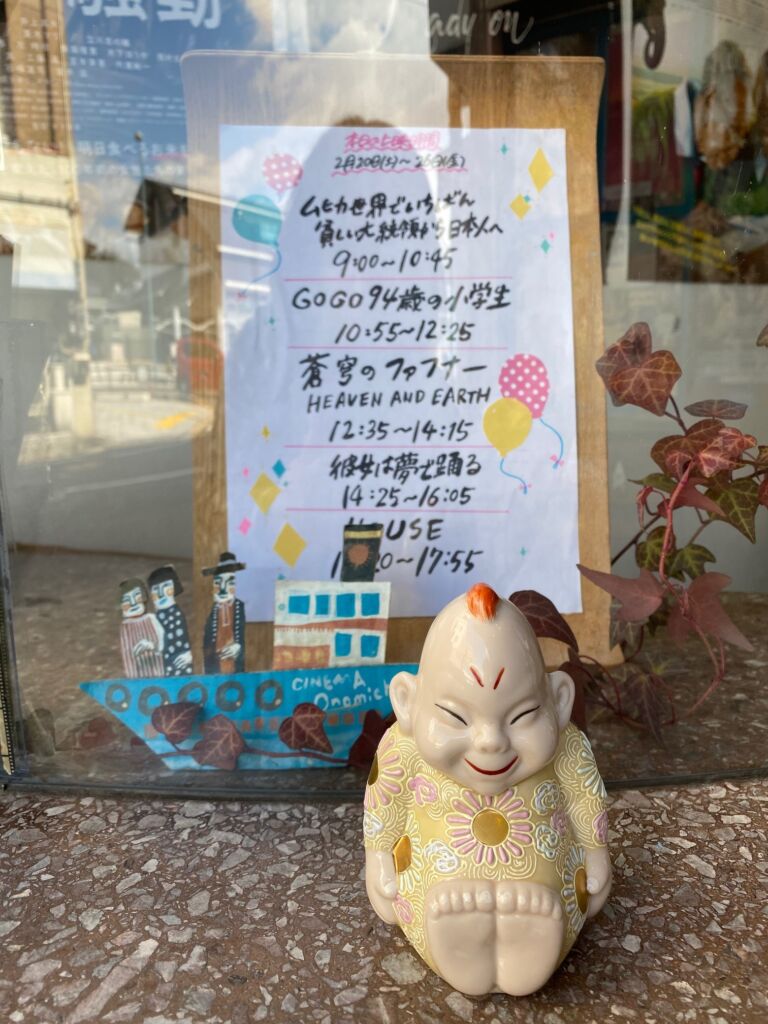 騒動
ady on
明日食べるお米
本日の上映時間
2月20日(土)〜26日(金)
ムヒカ世界でいちばん
貧しい大統領から日本人へ
9:00〜10:45
GOGO 94歳の小学生
10:55〜12:25
蒼穹のファフナー
HEAVEN AND EARTH
12:35〜14:15
彼女は夢で踊る
14:25〜16:05
USE
20〜17:55
CINEMA
Onomichi